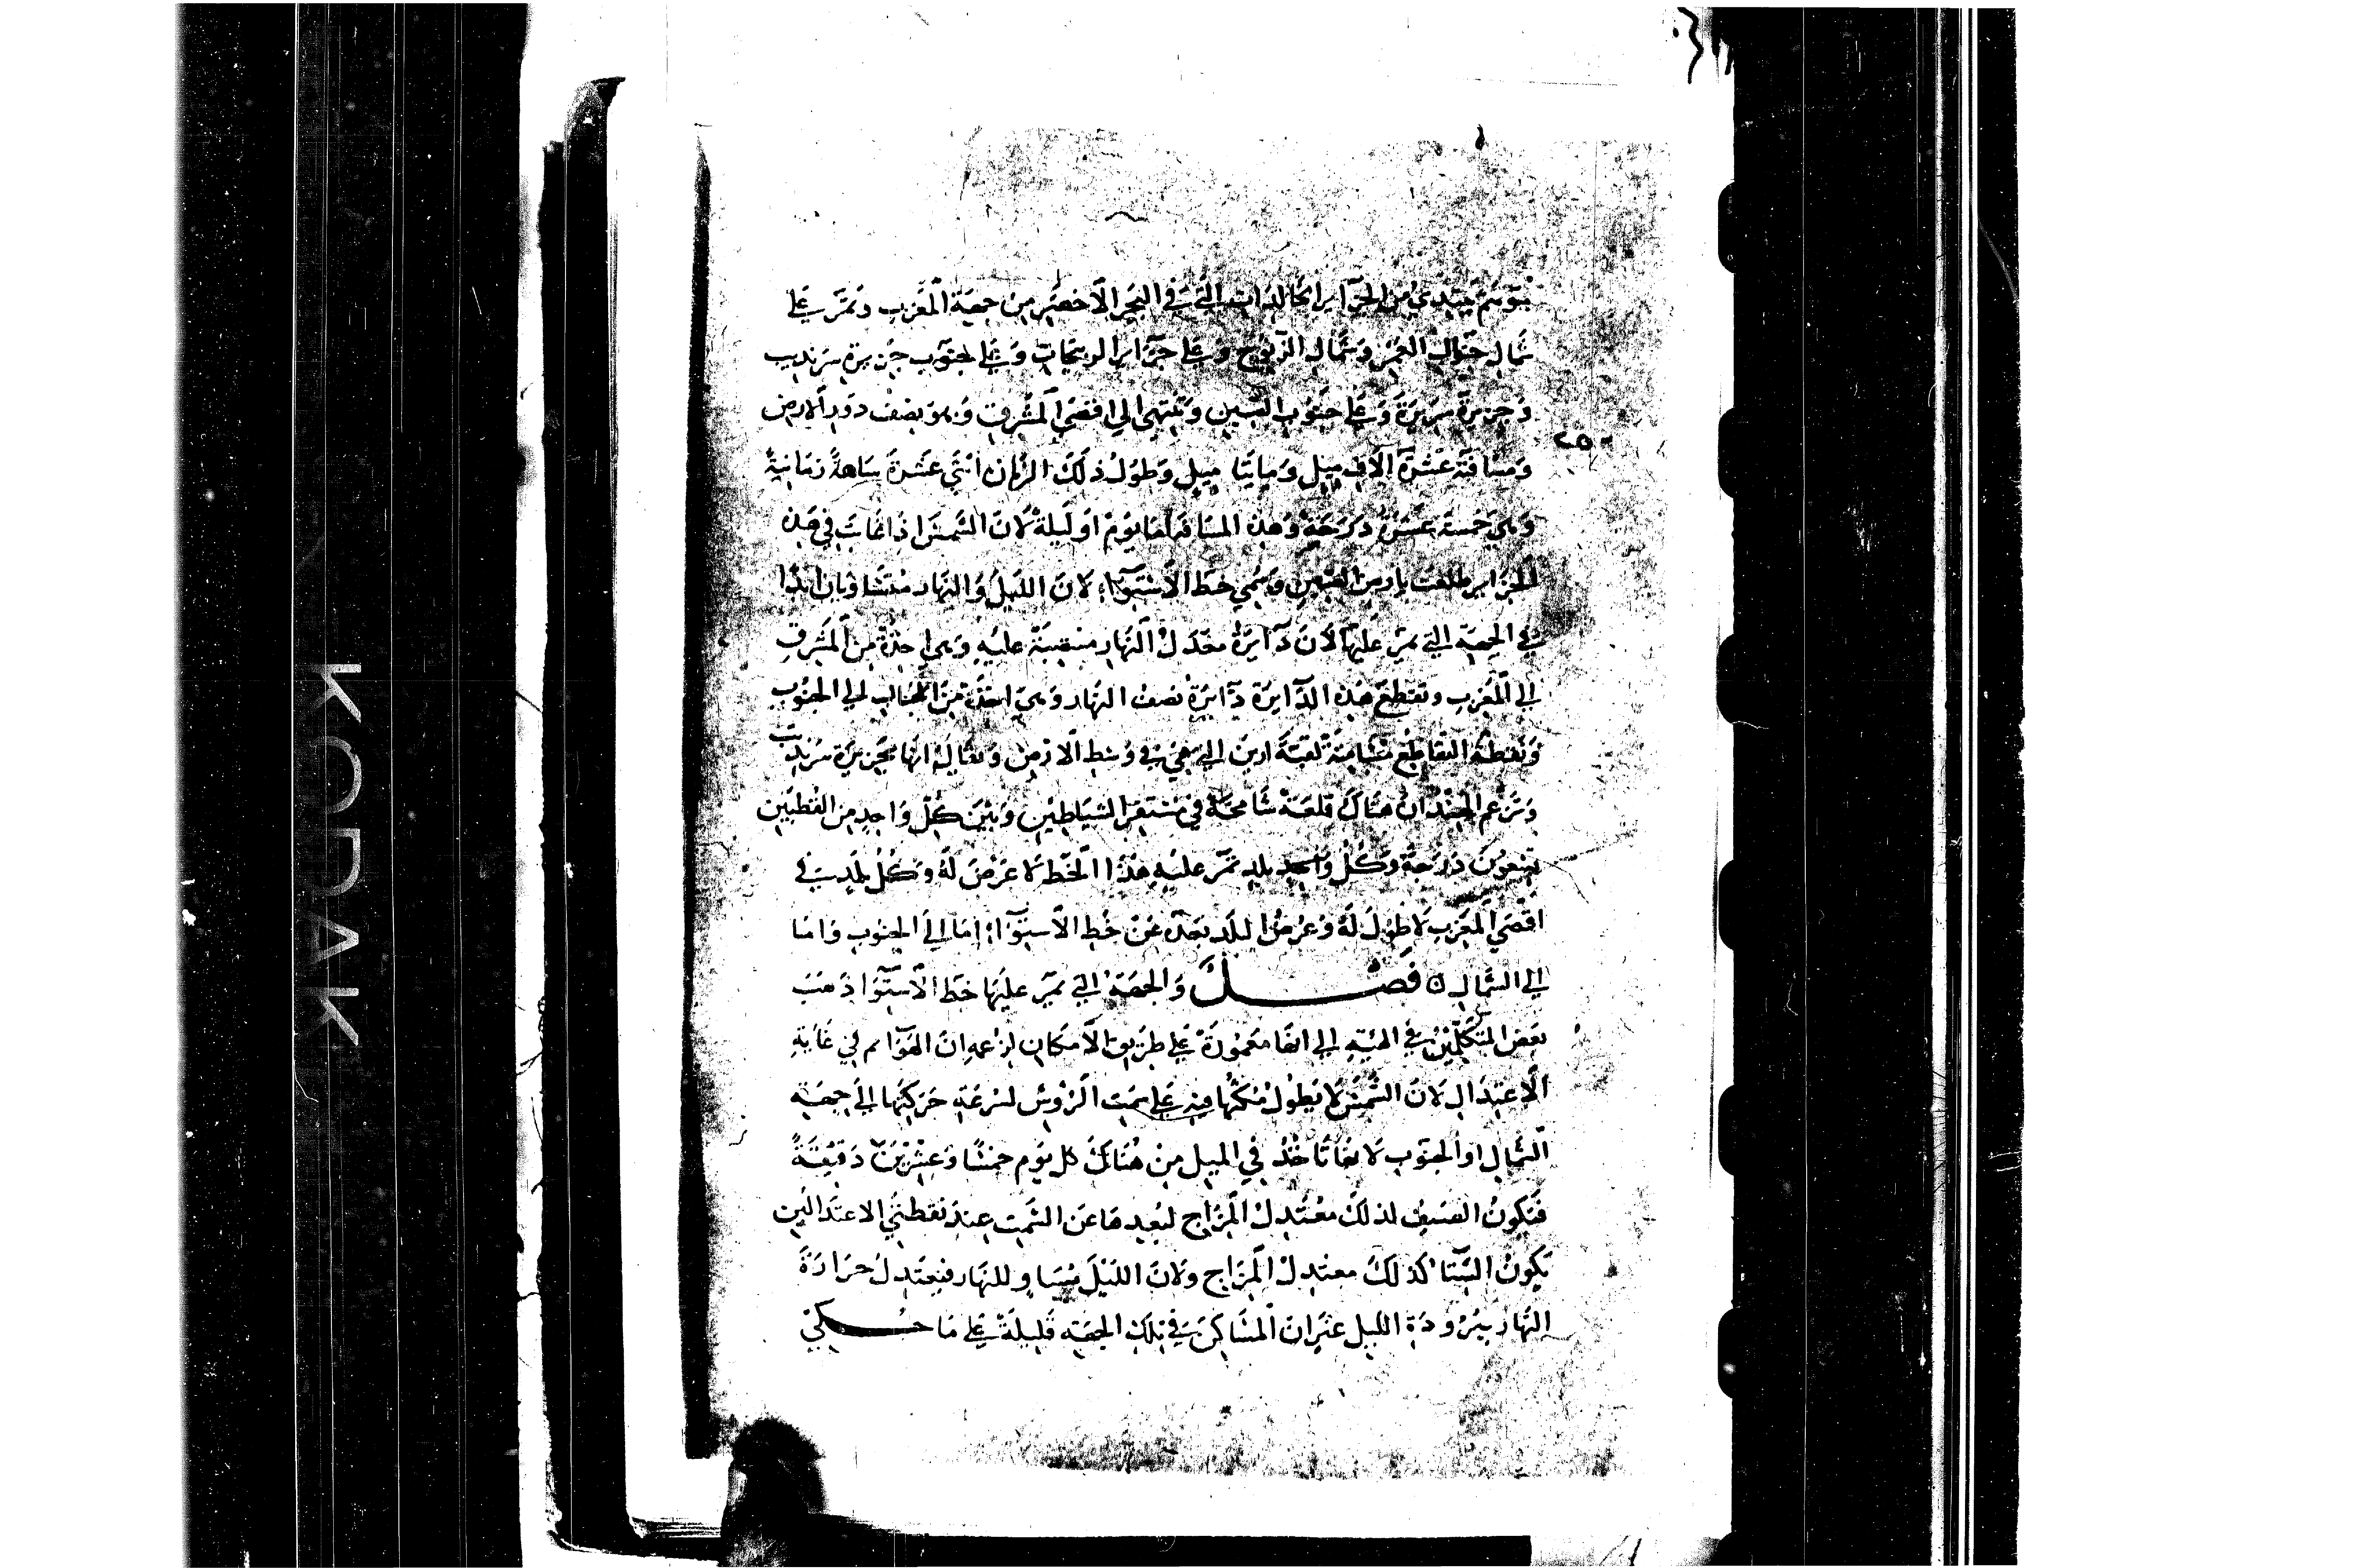 يتوهم يبتدي من الجزاير الخالدات التي في البحر الاخضر من جهة المغرب وتمر على
شمال جبال القمر وشمال الزنوج وعلى جزاير الريحات وعلى جنوب جزيرة سرنديب
وجزيرة سريرة وعلى جنوب الصين وينتهي الى اقصى المشرق وهو نصف دور الارض
٢٥
ومسافته عشرة الاف ميل ومايتا ميل وطول ذلك الزمان اثنتي عشرة ساعة زمانية
وهي خمسة عشر درجة وهذه المسافة اما يوم او ليلة لان الشمس اذا غابت في هذه
الجزاير طلعت بارض الصين وسمي خط الاستوآء لان الليل والنهار متساويان ابدا
في الجهة التي يمر عليها لان دآيرة معدل النهار منتصبة عليه وهي اخذة من المشرق
الى المغرب وتقطع هذه الدآيرة دآيرة نصف النهار وهي اخذة من الشمال الى الجنوب
ونقطة التقاطع مسامتة لقبة ارين التي هي في وسط الارض ويقال انها بجزيرة سرنديب
وتزعم الهند ان هناك قلعة شامخة في مستقر الشياطين وبين كل واحد من القطبين
تسعون درجة وكل واحد بلد تمر عليه هذا الخط لا عرض له وكل بلد في
اقصى المغرب لا طول له وعرض البلد بعده عن خط الاستوآء اما الى الجنوب واما
الى الشمال ٥ فصل والجهة التي يمر عليها خط الاستوآ ذهب
بعض المتكلمين في الهيئة الى انها معمورة على طريق الامكان لزعمه ان الهوآ ثم في غاية
الاعتدال لان الشمس لا يطول مكثها فيه على سمت الرؤس لسرعة حركتها الى جهة
الشمال او الجنوب لانها تاخذ في الميل من هناك كل يوم خمسا وعشرين دقيقة
فيكون الصيف لذلك معتدل المزاج لبعدها عن السمت عند نقطتي الاعتدالين
يكون الشتا كذلك معتدل المزاج ولان الليل مساو للنهار فيعتدل حرارة
النهار ببرودة الليل غير ان المساكن في تلك الجهة قليلة على ما حكي
KODAK